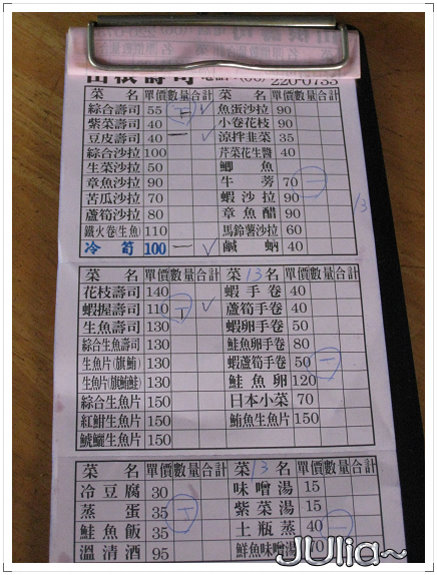 220-0755
菜名 單價 數量 合計 菜名 單價 數量 合計
綜合壽司 55 魚蛋沙拉 90
紫菜壽司 40 小卷花枝 90
豆皮壽司 40 一 涼拌韭菜 35
綜合沙拉 100 芹菜花生醬 40
生菜沙拉 50 鯽魚
章魚沙拉 90 牛蒡 70
苦瓜沙拉 70 蝦沙拉 90
蘆筍沙拉 80 章魚醋 90
鐵火卷(生魚) 110 馬鈴薯沙拉 60
冷筍 100 一 鹹蚋 40
13
菜名 單價 數量 合計 菜13名 單價 數量 合計
花枝壽司 140 蝦手卷 40
蝦握壽司 110 蘆筍手卷 40
生魚壽司 130 蝦卵手卷 50
綜合生魚壽司 130 鮭魚卵手卷 80
生魚片(旗鮪) 130 蝦蘆筍手卷 50 一
生魚片(旗鮪鮭) 130 鮭魚卵 120
綜合生魚片 150 日本小菜 70
紅魽生魚片 150 鮪魚生魚片 150
魷鱺生魚片 150
菜名 單價 數量 合計 菜13名 單價 數量 合計
冷豆腐 30 味噌湯 15
蒸蛋 35 紫菜湯 15
鮭魚飯 35 土瓶蒸 40 一
溫清酒 95 鮮魚味噌湯 70
JUlia~